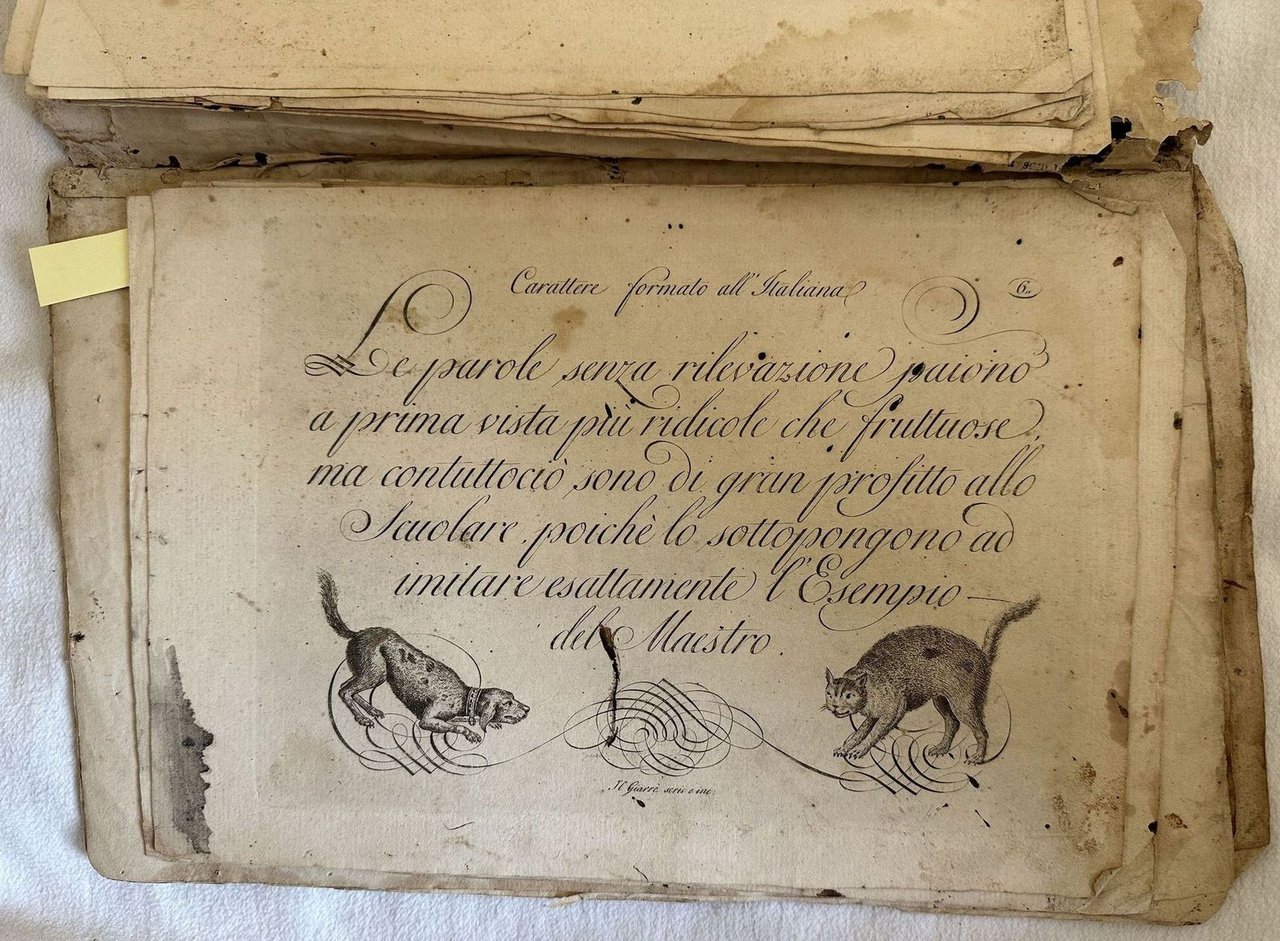 Carattere formato all'Italiana
6.
Le parole senza rilevazione paiono
a prima vista più ridicole che fruttuose,
ma contuttociò sono di gran profitto allo
Scuolare, poichè lo sottopongono ad
imitare esattamente l'Esempio —
del Maestro.
Il Giarrè scris. e inc.